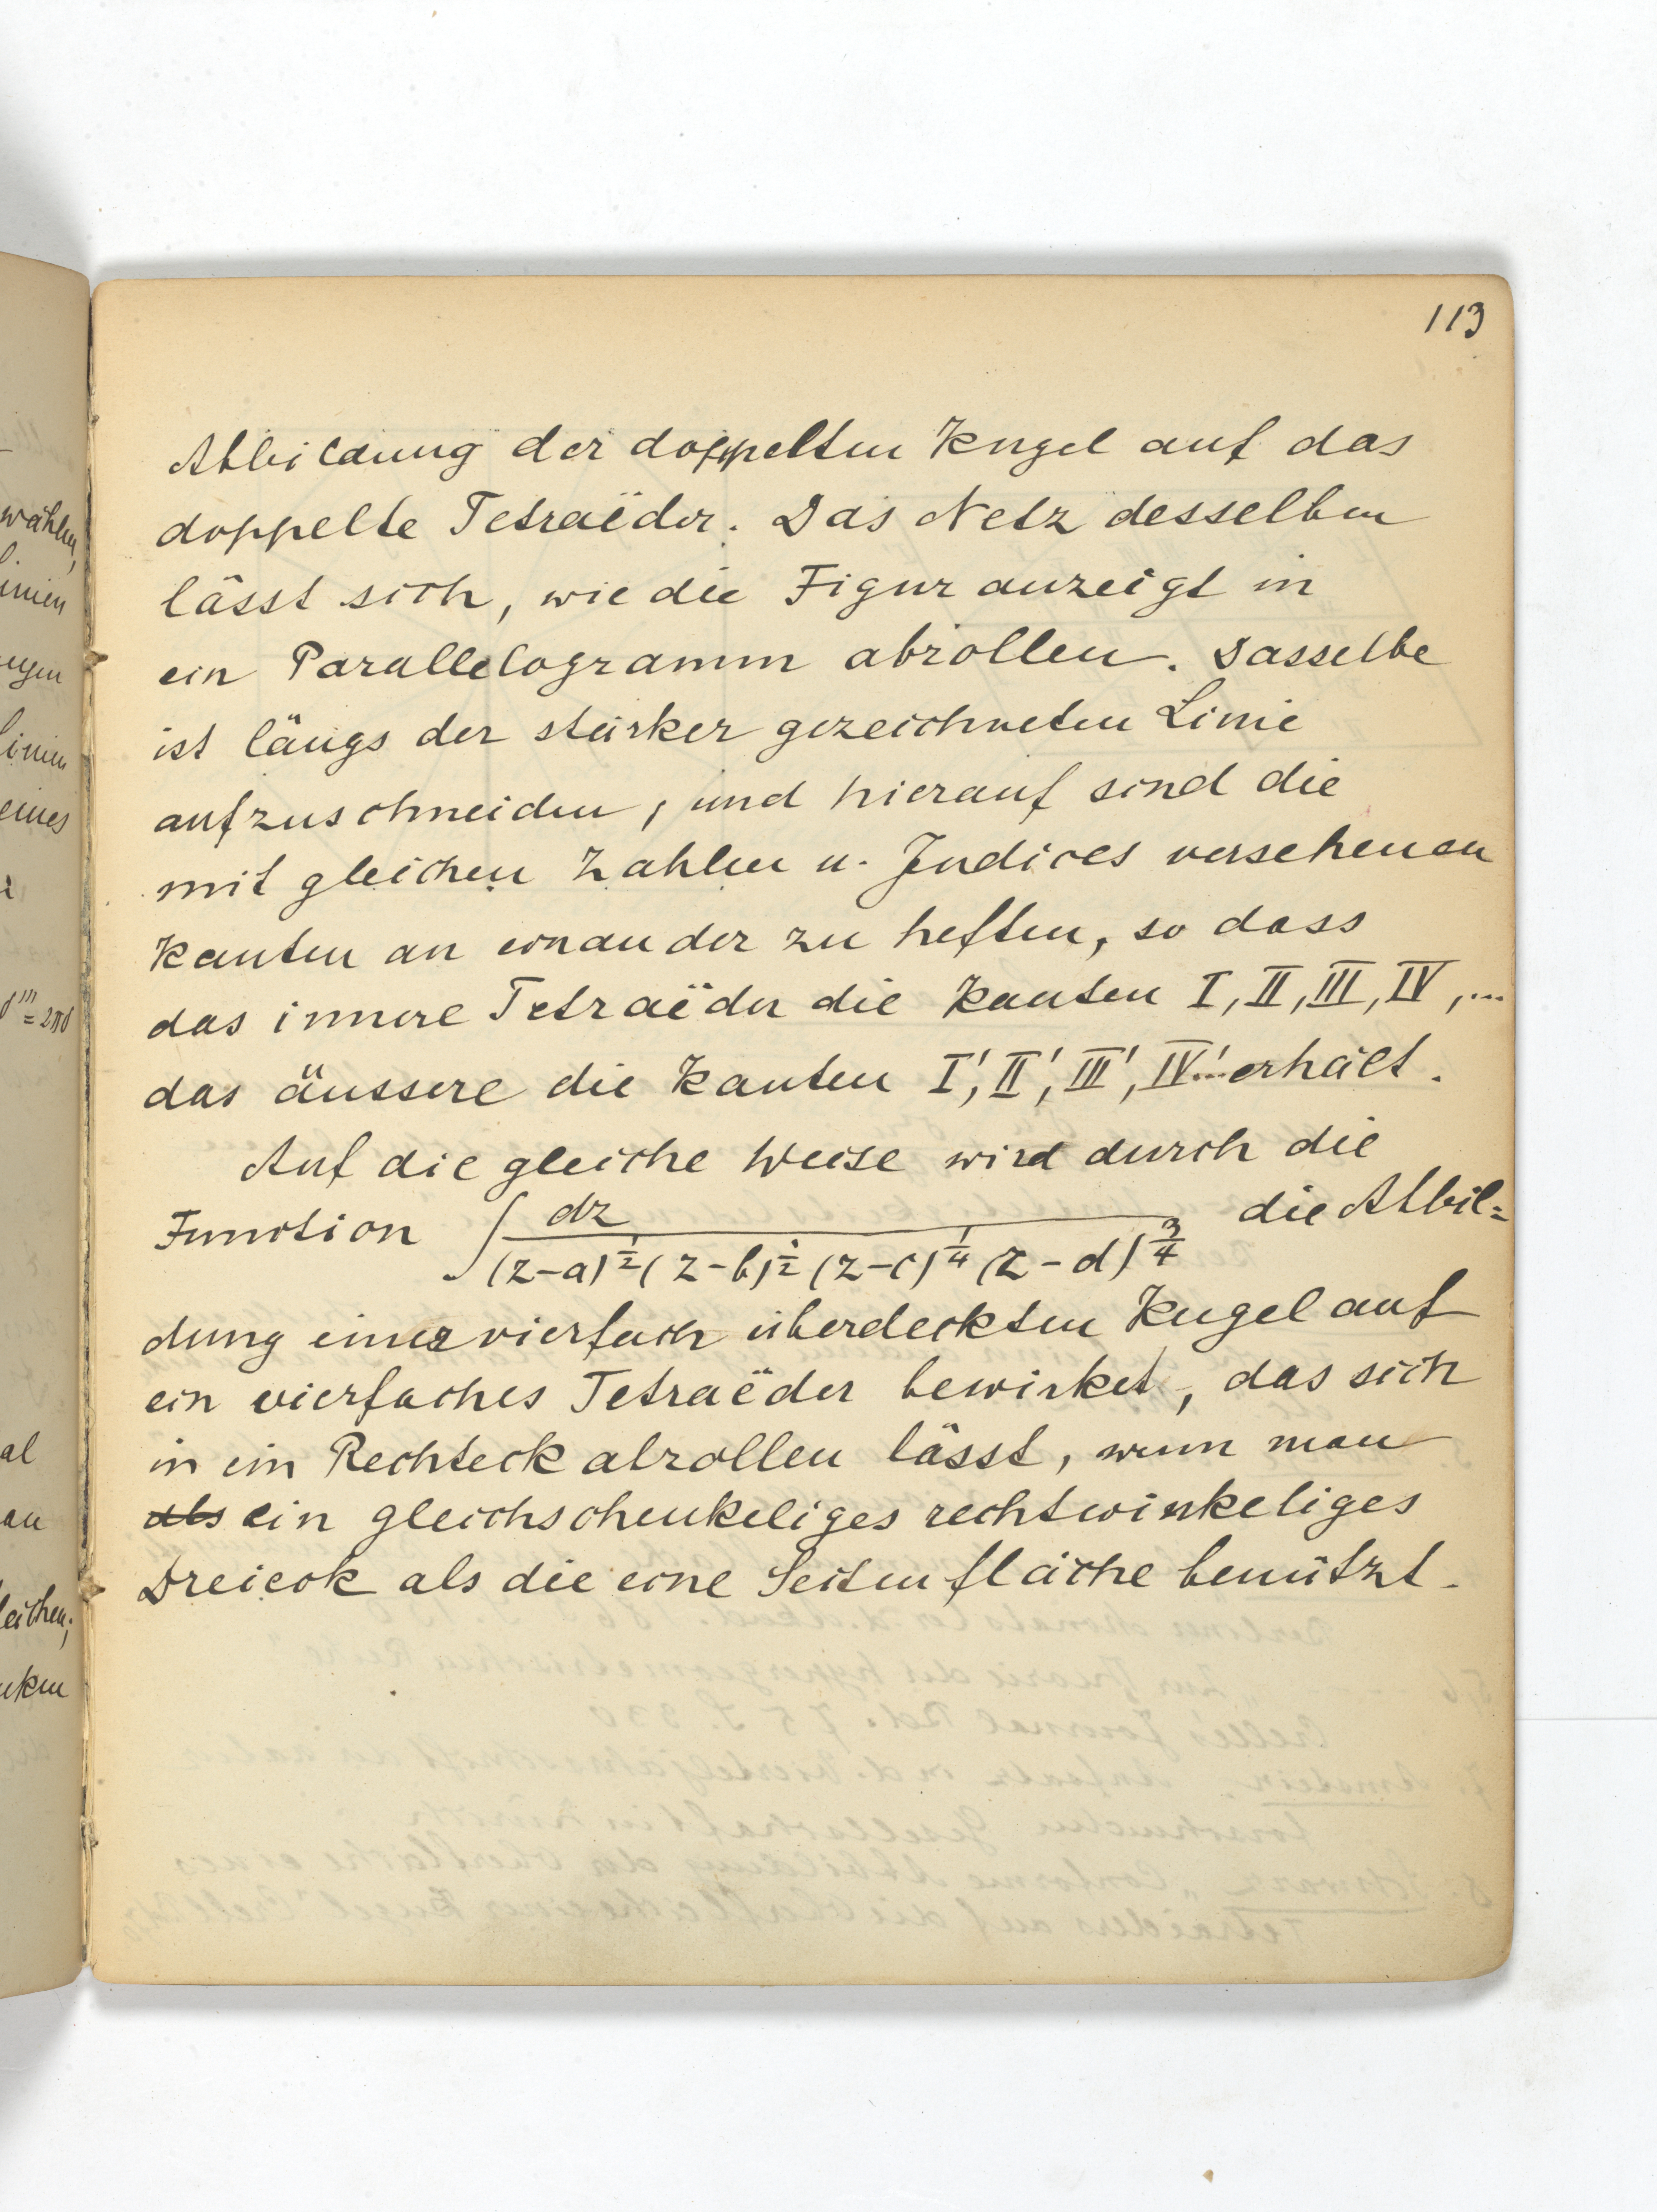 113
Abbildung der doppelten Kugel auf das
doppelte Tetraëder. Das Netz desselben
lässt sich, wie die Figur anzeigt in
ein Parallelogramm abrollen. Dasselbe
ist längs der stärker gezeichneten Linie
aufzuschneiden, und hierauf sind die
mit gleichen Zahlen u. Indices versehenen
Kanten an einander zu heften, so dass
das innere Tetraëder die Kanten I, II, III, IV, ...
das äussere die Kanten I', II', III', IV'... erhält.
Auf die gleiche Weise wird durch die
Function ∫ dz / (z-a)^{1/2} (z-b)^{1/2} (z-c)^{1/4} (z-d)^{3/4} die Abbil=
dung einer vierfach überdeckten Kugel auf
ein vierfaches Tetraëder bewirket, das sich
in ein Rechteck abrollen lässt, wenn man
als ein gleichschenkeliges rechtwinkeliges
Dreieck als die eine Seitenfläche benützt.
wählen,
linien
eines
al
leichen;